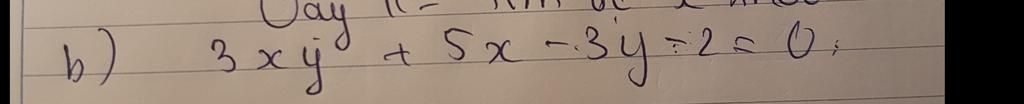 b) 3xy + 5x - 3y - 2 = 0.